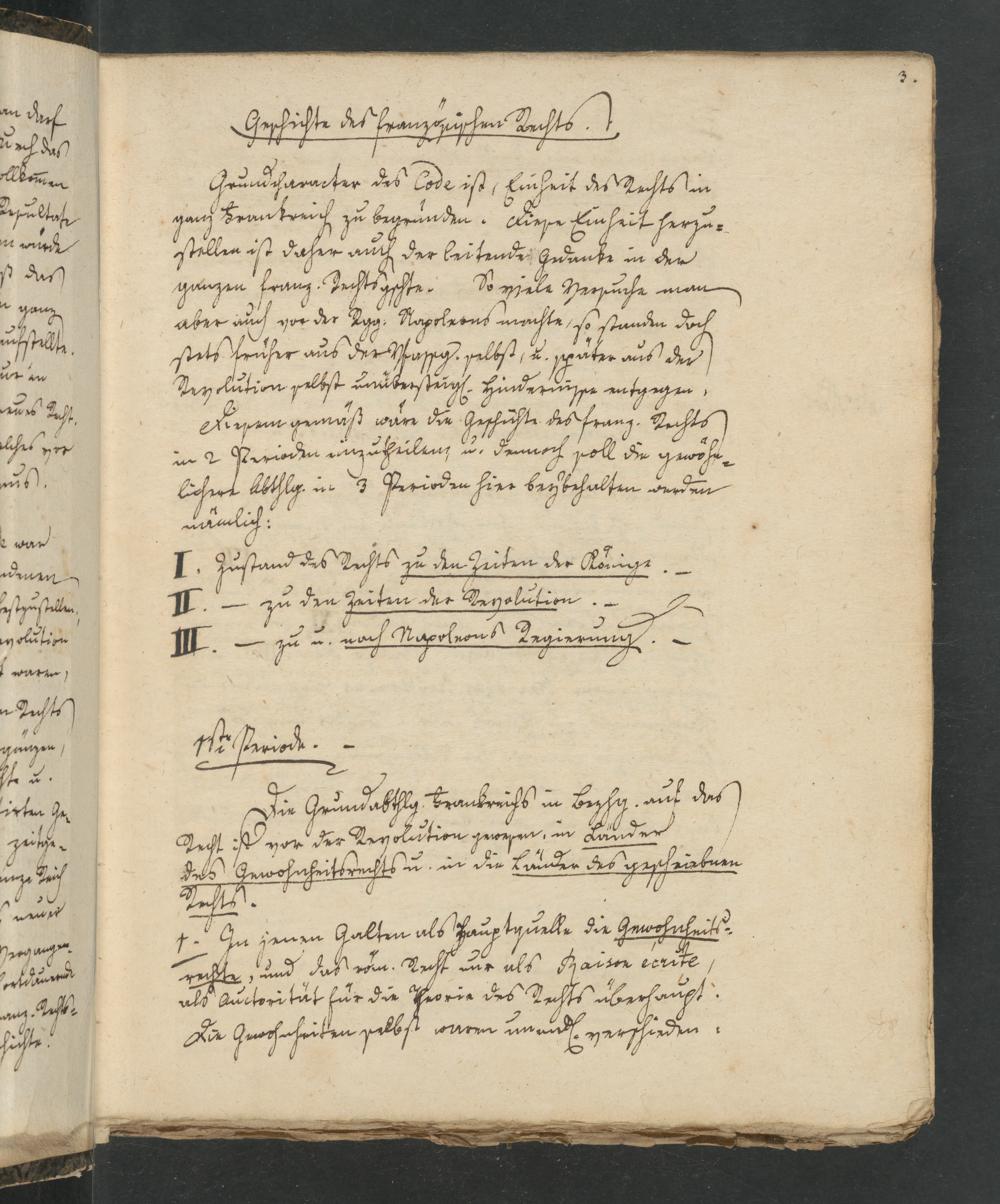 3.
Geschichte des französischen Rechts.
Grundcharacter des Code ist, Einheit des Rechts in
ganz Frankreich zu begründen. Diese Einheit herzu=
stellen ist daher auch der leitende Gedanke in der
ganzen franz. Rechtsgschte. So viele Versuche man
aber auch vor der Rgg. Napoleons machte, so standen doch
stets früher aus der Vfassg. selbst, u. später aus der
Revolution selbst unübersteigl. Hindernisse entgegen.
Diesem gemäß wäre die Geschichte des franz. Rechts
in 2 Perioden einzutheilen, u. dennoch soll die gewöhn=
lichere Abthlg. in 3 Perioden hier beybehalten werden
nämlich:
I. Zustand des Rechts zu den Zeiten der Könige. –
II. – zu den Zeiten der Revolution. –
III. – zu u. nach Napoleons Regierung. –
1ste Periode. –
Die Grundabthlg. Frankreichs in Bezhg. auf das
Recht ist vor der Revolution gewesen, in Länder
des Gewohnheitsrechts u. in die Länder des geschriebnen
Rechts.
1. In jenen galten als Hauptquelle die Gewohnheits=
rechte, und das röm. Recht nur als Raison écrite,
als Auctorität für die Theorie des Rechts überhaupt.
Die Gewohnheiten selbst waren unendl. verschieden.
an darf
durch das
ollkommen
Resultate
n würde
ß das
n ganz
aufstellte.
neues Recht.
elches vor
aus.
e war
ndenen
festzustellen,
evolution
t waren,
n Rechts
gänzen,
hte u.
irten Ge=
zeitge=
anze Reich
s neuer
Vergangen=
ortdauernde
anz. Rechts=
chichte.